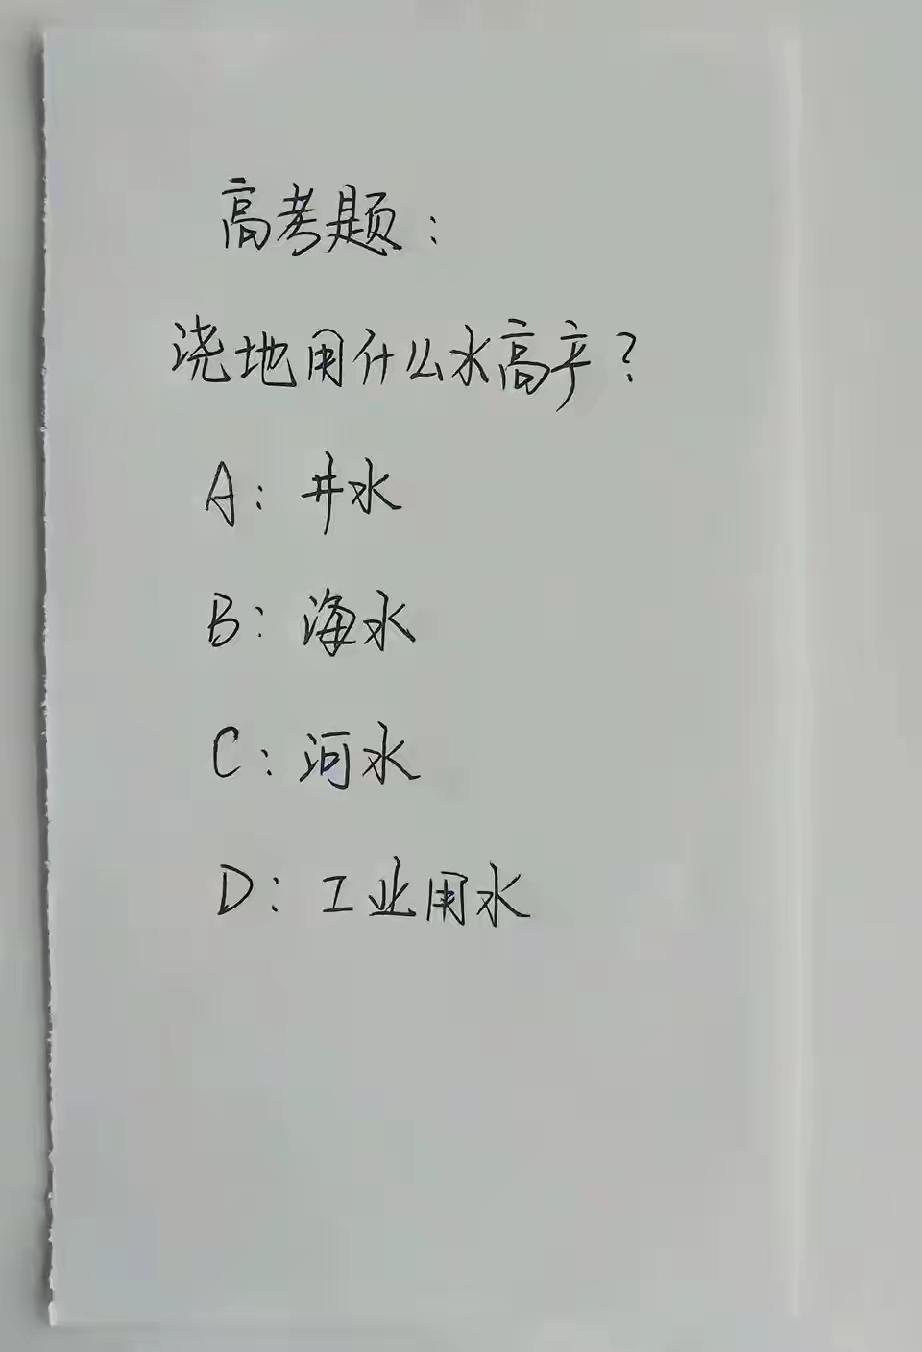 高考题：
浇地用什么水高产？
A：井水
B：海水
C：河水
D：工业用水